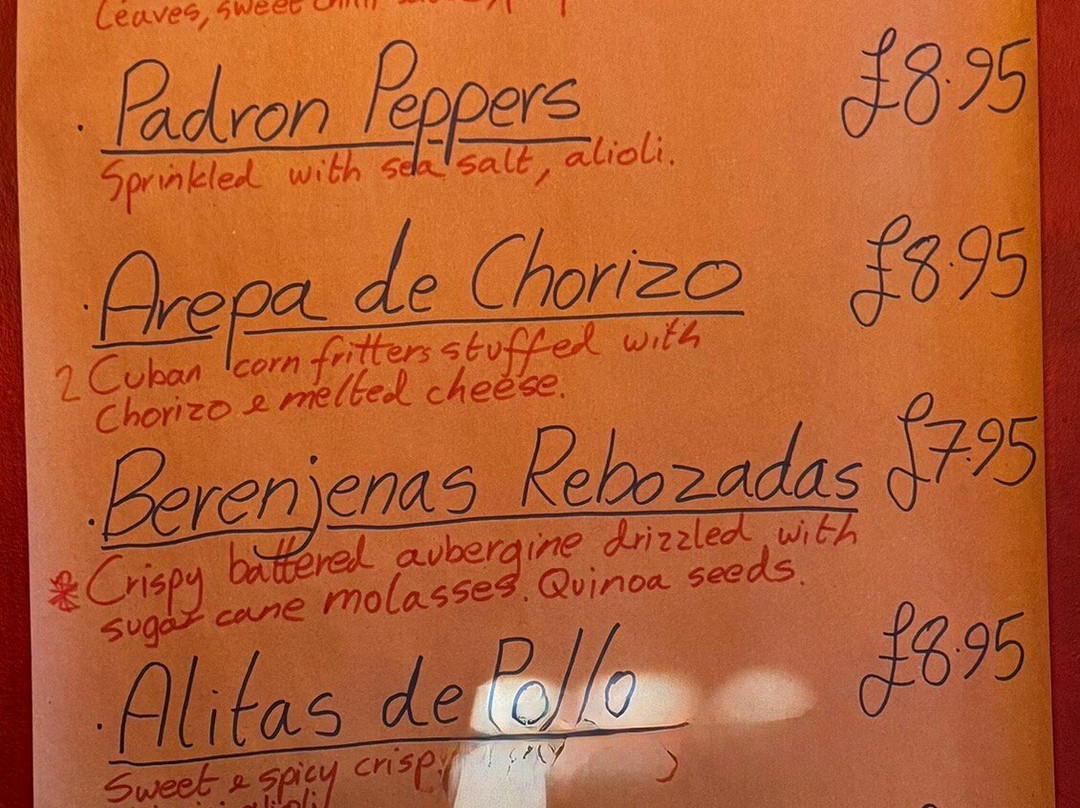 Leaves, sweet chilli
· Padron Peppers £8.95
Sprinkled with sea salt, alioli.
· Arepa de Chorizo £8.95
2 Cuban corn fritters stuffed with
Chorizo & melted cheese.
· Berenjenas Rebozadas £7.95
* Crispy battered aubergine drizzled with
sugar cane molasses. Quinoa seeds.
· Alitas de Pollo £8.95
Sweet & spicy crispy
alioli